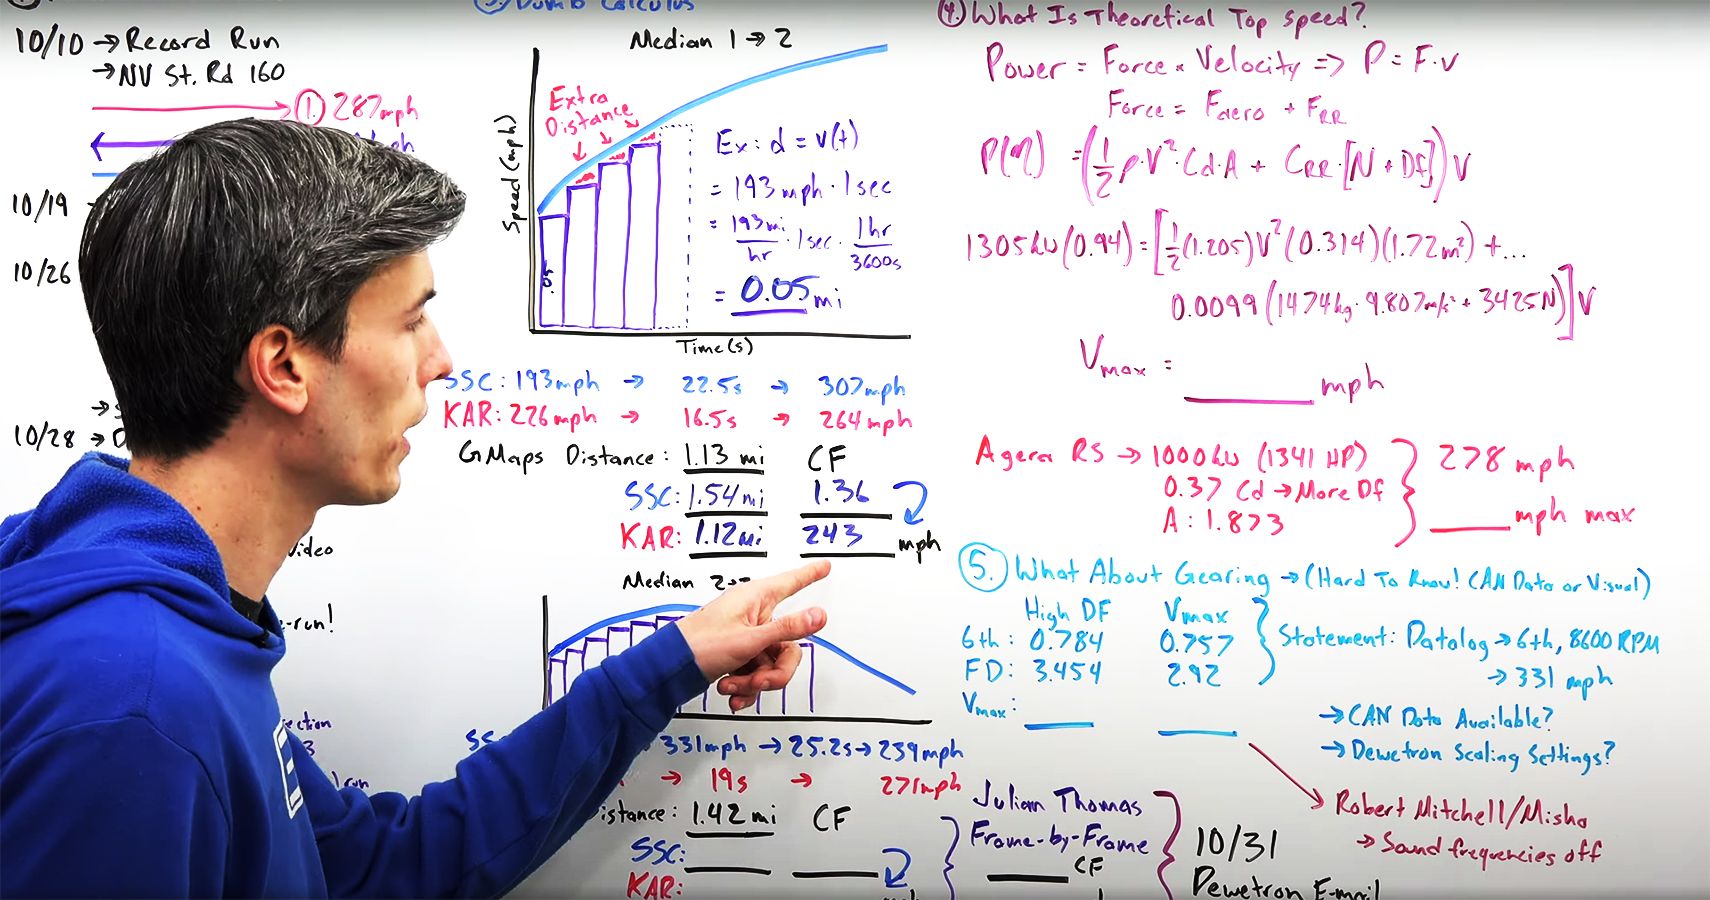 10/10 → Record Run
→ NV St. Rd 160
① 287mph
mph
10/19
10/26
10/28 →
video
-run!
ection
3
run
3. Dumb Calculus
Median 1 → 2
Speed (mph)
Extra
Distance
Ex: d = v(t)
= 193 mph · 1 sec
= 193mi/hr · 1sec · 1hr/3600s
= 0.05 mi
Time (s)
SSC: 193mph → 22.5s → 307mph
KAR: 226mph → 16.5s → 264mph
GMaps Distance: 1.13 mi CF
SSC: 1.54mi 1.36
KAR: 1.12mi 243 mph
Median 2→
331mph → 25.2s → 239mph
→ 19s → 271mph
istance: 1.42 mi CF
SSC:
KAR:
④ What Is Theoretical Top Speed?
Power = Force × Velocity => P = F·v
Force = Faero + FRR
P(η) = (1/2 ρ·V² Cd·A + CRR·[N + Df])V
1305kW(0.94) = [1/2(1.205)V²(0.314)(1.72m²) + ...
0.0099(1474kg·9.807m/s² + 3425N)]V
Vmax = mph
Agera RS → 1000kW (1341 HP)
0.37 Cd → More Df
A: 1.873
278 mph
mph max
⑤ What About Gearing → (Hard To Know! CAN Data or Visual)
High DF Vmax
6th: 0.784 0.757
FD: 3.454 2.92
Vmax:
Statement: Datalog → 6th, 8600 RPM
→ 331 mph
→ CAN Data Available?
→ Dewetron Scaling Settings?
Robert Mitchell/Misha
→ Sound frequencies off
Julian Thomas
Frame-by-Frame
CF
10/31
Dewetron E-mail